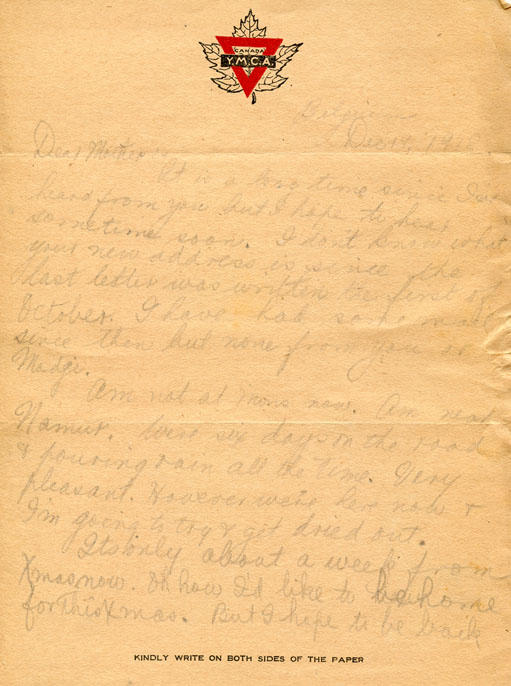 CANADA
Y.M.C.A.
Belgium
Dec 17, 191
Dear Mother
It is a long time since I've
heard from you but I hope to hear
sometime soon. I don't know what
your new address is since the
last letter was written the first of
October. I have had some mail
since then but none from you or
Madge.
Am not at Mons now. Am near
Namur. Were six days on the road
& pouring rain all the time. Very
pleasant. However we're here now &
I'm going to try & get dried out.
Its only about a week from
Xmas now. Oh how I'd like to be home
for this Xmas. But I hope to be back
KINDLY WRITE ON BOTH SIDES OF THE PAPER